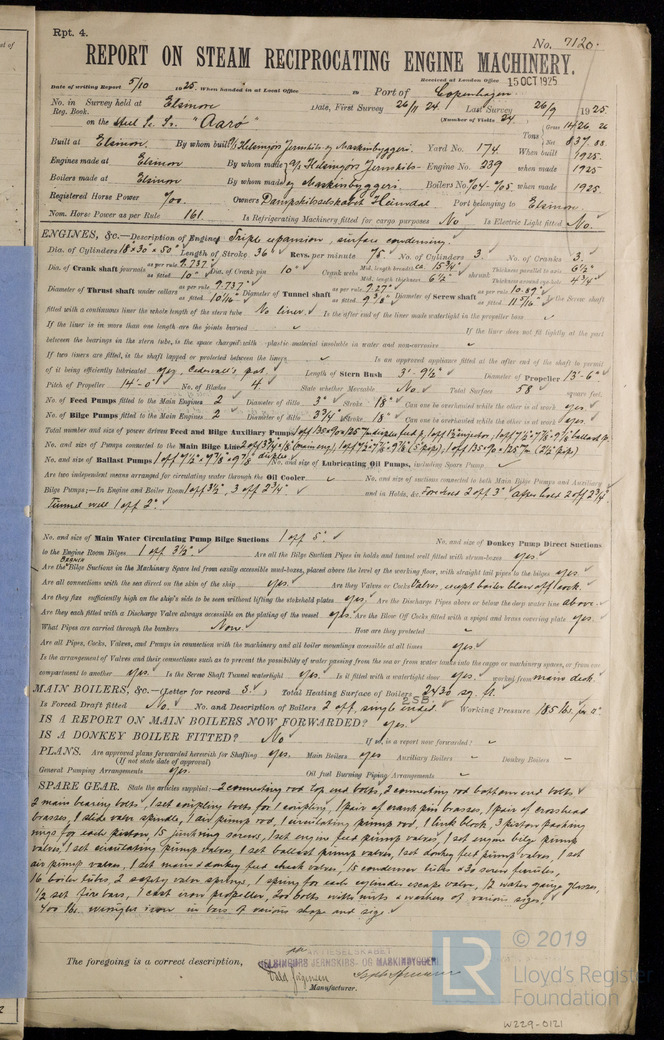 Rpt. 4.
No. 7120.
REPORT ON STEAM RECIPROCATING ENGINE MACHINERY.
Received at London Office 15 OCT 1925
Date of writing Report 5/10 1925 When handed in at Local Office 19 Port of Copenhagen
No. in Survey held at Elsinore Date, First Survey 26/11 24 Last Survey 26/9 1925
Reg. Book. (Number of Visits 24
on the Steel Sc. Sr. "Aarö" Tons Gross 1426.26
Net 837.88
Built at Elsinore By whom built Helsingörs Jernskibs og Maskinbyggeri Yard No. 174 When built 1925
Engines made at Elsinore By whom made A/S Helsingörs Jernskibs- Engine No. 239 when made 1925
Boilers made at Elsinore By whom made og Maskinbyggeri. Boilers No. 704-705 when made 1925
Registered Horse Power 700. Owners Dampskibsselskabet Heimdal Port belonging to Elsinore.
Nom. Horse Power as per Rule 161. Is Refrigerating Machinery fitted for cargo purposes No Is Electric Light fitted No.
ENGINES, &c.—Description of Engines Triple expansion, surface condensing.
Dia. of Cylinders 18" × 30" × 50" Length of Stroke 36" Revs. per minute 75 No. of Cylinders 3. No. of Cranks 3.
Dia. of Crank shaft journals as per rule 9.737" as fitted 10" Dia. of Crank pin 10" Crank webs Mid. length breadth ca. 15 3/4" Mid. length thickness 6 1/2" shrunk Thickness parallel to axis 6 1/2" Thickness around eyehole 4 3/4"
Diameter of Thrust shaft under collars as per rule 9.737" as fitted 10 1/16" Diameter of Tunnel shaft as per rule 9.27" as fitted 9 3/8" Diameter of Screw shaft as per rule 10.89" as fitted 11 5/16" Is the Screw shaft
fitted with a continuous liner the whole length of the stern tube No liner. Is the after end of the liner made watertight in the propeller boss
If the liner is in more than one length are the joints burned If the liner does not fit tightly at the part
between the bearings in the stern tube, is the space charged with plastic material insoluble in water and non-corrosive
If two liners are fitted, is the shaft lapped or protected between the liners Is an approved appliance fitted at the after end of the shaft to permit
of it being efficiently lubricated yes. Cedervall's pat. Length of Stern Bush 3'-9 1/2" Diameter of Propeller 13'-6"
Pitch of Propeller 14'-0" No. of Blades 4 State whether Moveable No. Total Surface 58 square feet.
No. of Feed Pumps fitted to the Main Engines 2 Diameter of ditto 3" Stroke 18" Can one be overhauled while the other is at work yes.
No. of Bilge Pumps fitted to the Main Engines 2 Diameter of ditto 3 3/4" Stroke 18" Can one be overhauled while the other is at work yes.
Total number and size of power driven Feed and Bilge Auxiliary Pumps
No. and size of Pumps connected to the Main Bilge Line
No. and size of Ballast Pumps No. and size of Lubricating Oil Pumps, including Spare Pump
Are two independent means arranged for circulating water through the Oil Cooler No. and size of suctions connected to both Main Bilge Pumps and Auxiliary
Bilge Pumps;—In Engine and Boiler Room 1 off 3 1/2", 3 off 2 3/4" and in Holds, &c. Fore hold 2 off 3" After hold 2 off 2 3/4",
Tunnel well 1 off 2"
No. and size of Main Water Circulating Pump Bilge Suctions 1 off 5" No. and size of Donkey Pump Direct Suctions
to the Engine Room Bilges 1 off 3 1/2" Are all the Bilge Suction Pipes in holds and tunnel well fitted with strum-boxes yes
Are the Bilge Suctions in the Machinery Space led from easily accessible mud-boxes, placed above the level of the working floor, with straight tail pipes to the bilges yes.
Are all connections with the sea direct on the skin of the ship yes. Are they Valves or Cocks Valves, except boiler blow off cock.
Are they fixed sufficiently high on the ship's side to be seen without lifting the stokehold plates yes. Are the Discharge Pipes above or below the deep water line above.
Are they each fitted with a Discharge Valve always accessible on the plating of the vessel yes. Are the Blow Off Cocks fitted with a spigot and brass covering plate yes.
What Pipes are carried through the bunkers None. How are they protected
Are all Pipes, Cocks, Valves, and Pumps in connection with the machinery and all boiler mountings accessible at all times yes.
Is the arrangement of Valves and their connections such as to prevent the possibility of water passing from the sea or from water tanks into the cargo or machinery spaces, or from one
compartment to another yes. Is the Screw Shaft Tunnel watertight yes. Is it fitted with a watertight door yes. worked from main deck.
MAIN BOILERS, &c.—(Letter for record S.) Total Heating Surface of Boilers 2430 sq. ft.
Is Forced Draft fitted No. No. and Description of Boilers 2 off, single ended. 2SB Working Pressure 185 lbs. per □"
IS A REPORT ON MAIN BOILERS NOW FORWARDED? yes.
IS A DONKEY BOILER FITTED? No. If so, is a report now forwarded?
PLANS. Are approved plans forwarded herewith for Shafting yes. Main Boilers yes Auxiliary Boilers Donkey Boilers
(If not state date of approval)
General Pumping Arrangements yes. Oil fuel Burning Piping Arrangements
SPARE GEAR. State the articles supplied:— 2 connecting rod top end bolts, 2 connecting rod bottom end bolts
2 main bearing bolts, 1 set coupling bolts for 1 coupling, 1 pair of crank pin brasses, 1 pair of crosshead
brasses, 1 slide valve spindle, 1 air pump rod, 1 circulating pump rod, 1 link block, 3 piston packing
rings for each piston, 15 junk ring screws, 1 set engine feed pump valves, 1 set engine bilge pump
valves, 1 set circulating pump valves, 1 set ballast pump valves, 1 set donkey feed pump valves, 1 set
air pump valves, 1 set main & donkey feed check valves, 15 condenser tubes & 30 screw ferrules,
16 boiler tubes, 2 safety valve springs, 1 spring for each cylinder escape valve, 12 water gauge glasses,
1/2 set fire bars, 1 cast iron propeller, 200 bolts with nuts & washers of various sizes
400 lbs. wrought iron in bars of various shape and size
The foregoing is a correct description,
AKTIESELSKABET
HELSINGÖRS JERNSKIBS- OG MASKINBYGGERI
Manufacturer.
LR
© 2019
Lloyd's Register
Foundation
W229-0121